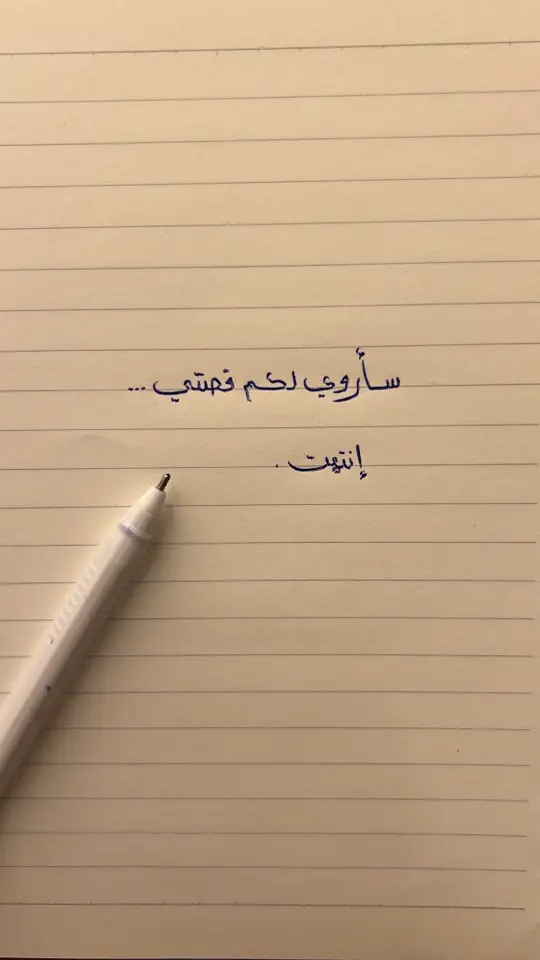 سأروي لكم قصتي ...
إنتهيت .